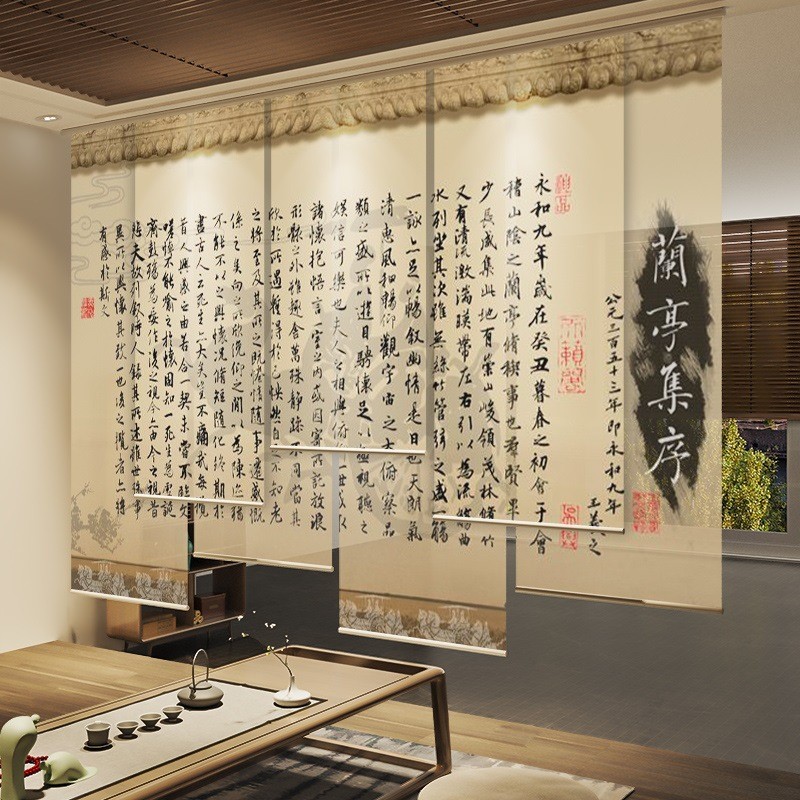 蘭亭集序
公元三百五十三年即永和九年
王羲之
永和九年歲在癸丑暮春之初會于會
稽山陰之蘭亭脩禊事也羣賢畢
少長咸集此地有崇山峻領茂林脩竹
又有清流激湍暎帶左右引以為流觴曲
水列坐其次雖無絲竹管弦之盛一觴
一詠亦足以暢敘幽情是日也天朗氣
清惠風和暢仰觀宇宙之大俯察品
類之盛所以遊目騁懷足以極視聽之
娛信可樂也夫人之相與俯仰一世或取
諸懷抱悟言一室之內或因寄所託放浪
形骸之外雖趣舍萬殊靜躁不同當其
欣於所遇暫得於己怏然自足不知老
之將至及其所之既惓情隨事遷感慨
係之矣向之所欣俛仰之間以為陳迹猶
不能不以之興懷況脩短隨化終期於
盡古人云死生亦大矣豈不痛哉每攬
昔人興感之由若合一契未嘗不臨文
嗟悼不能喻之於懷固知一死生為虛誕
齊彭殤為妄作後之視今亦由今之視昔
悲夫故列敘時人錄其所述雖世殊事
異所以興懷其致一也後之攬者亦將
有感於斯文